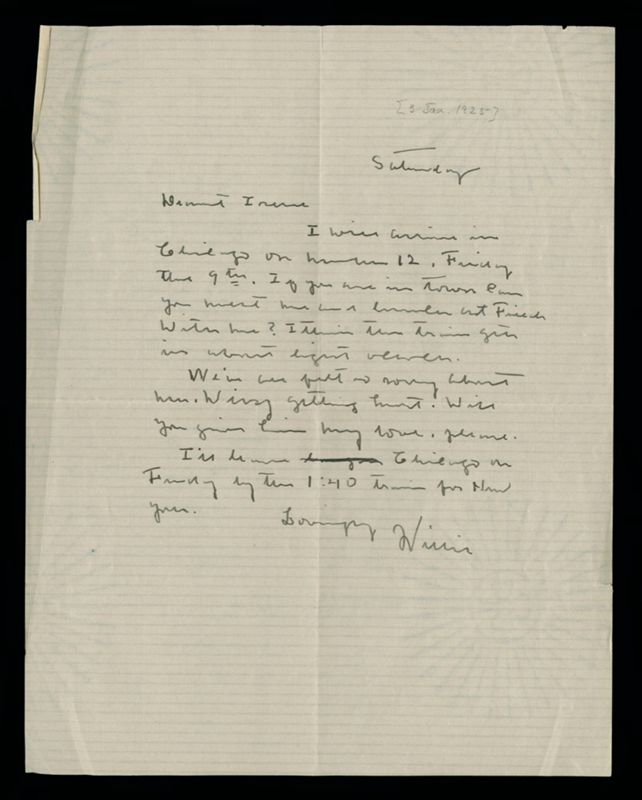 [3 Jan. 1925]
Saturday
Dearest Irene
I will arrive in
Chicago on number 12, Friday
the 9th. If you are in town can
you meet me and lunch at Field's
With me? I think the train gets
in about eight eleven.
We've all felt so sorry about
Mr. Weisz getting hurt. Will
you give him my love, please.
I'll leave Chicago on
Friday by the 1:40 train for New
York.
Lovingly Willie